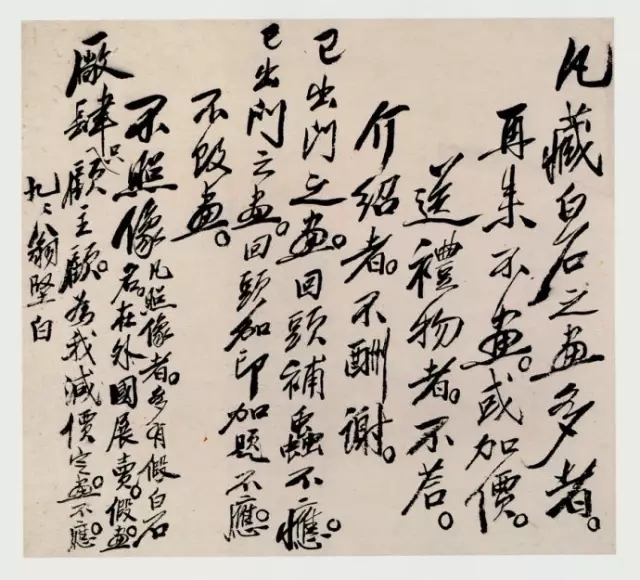 凡藏白石之畫多者。
再來不畫。或加價。
送禮物者。不荅。
介紹者。不酬謝。
已出門之畫。回頭補蟲不應。
已出門之畫。回頭加印加題不應。
不改畫。
不照像。凡照像者。多有假白石
名。在外國展賣。假畫。
厰肆只顧主顧。為我減價定畫不應。
九〻翁堅白